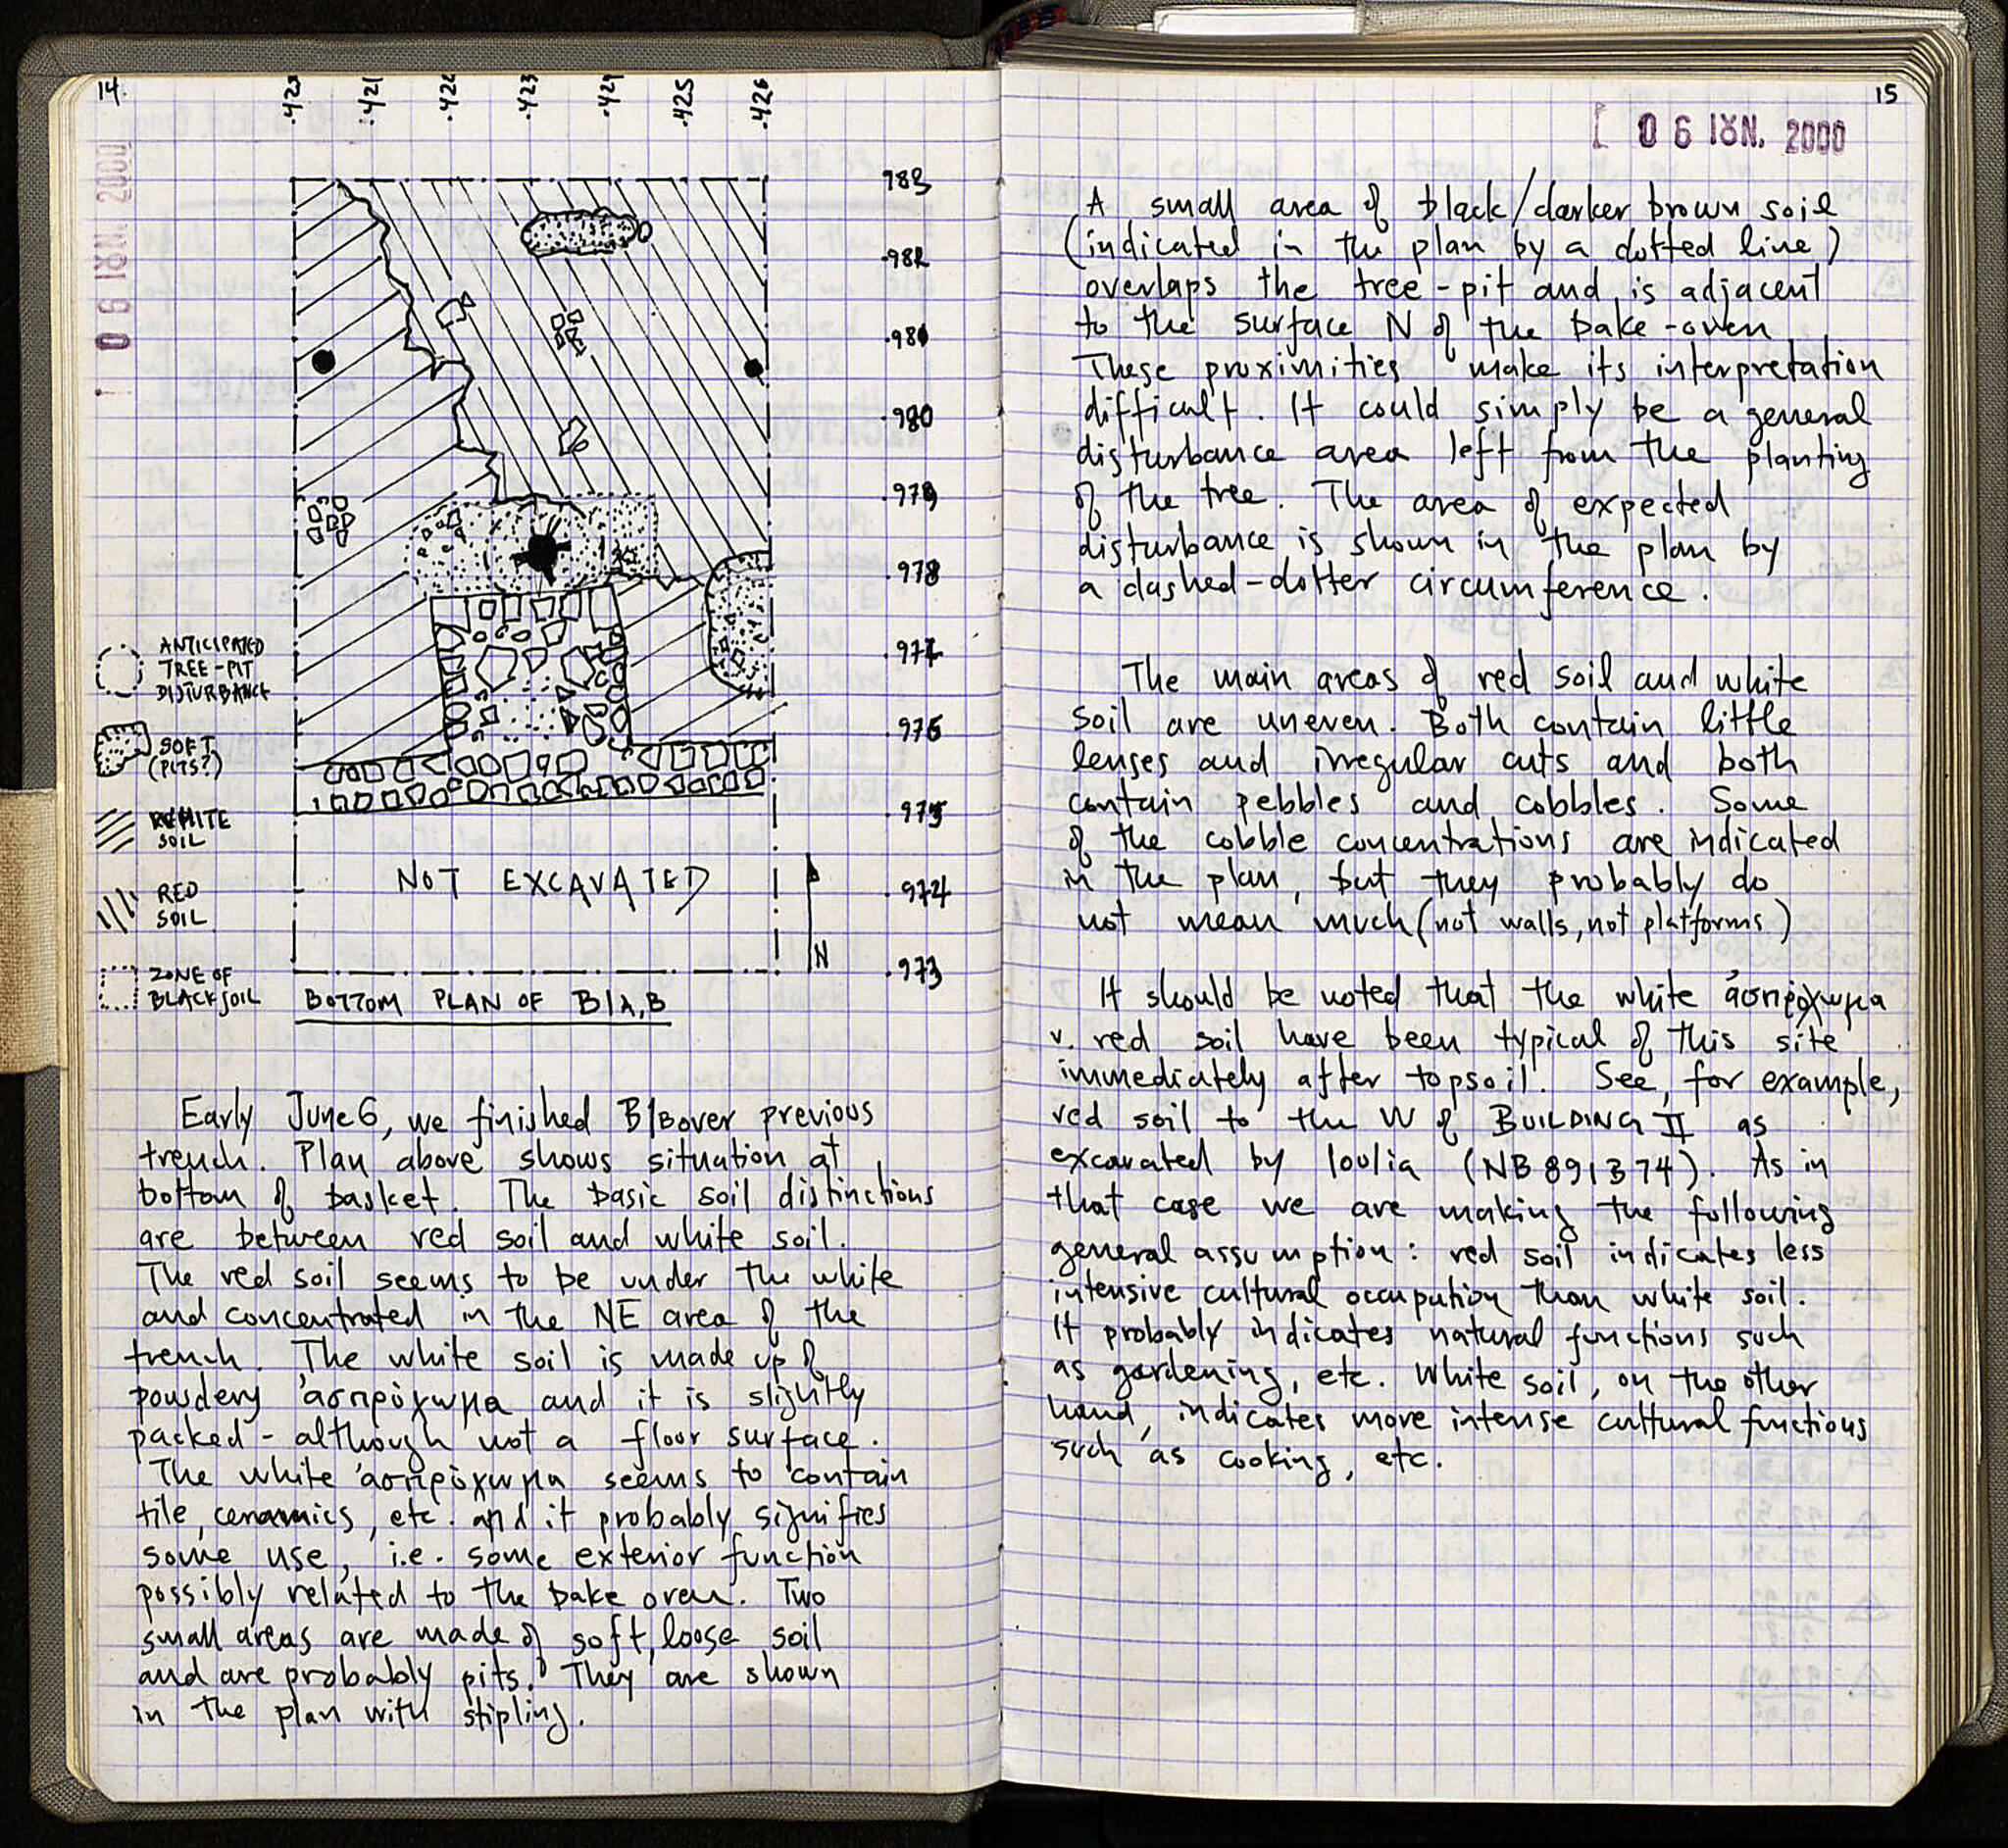 14.
.420
.421
.422
.423
.424
.425
.426
06 ΙΟΥΝ. 2000
983
.982
.981
980
.979
.978
.977
976
.975
.974
.973
ANTICIPATED
TREE-PIT
DISTURBANCE
SOFT
(PITS?)
WHITE
SOIL
RED
SOIL
ZONE OF
BLACK SOIL
NOT EXCAVATED
N
BOTTOM PLAN OF B/A,B
Early June 6, we finished B/B over previous
trench. Plan above shows situation at
bottom of basket. The basic soil distinctions
are between red soil and white soil.
The red soil seems to be under the white
and concentrated in the NE area of the
trench. The white soil is made up of
powdery ἀσπρόχωμα and it is slightly
packed - although not a floor surface.
The white ἀσπρόχωμα seems to contain
tile, ceramics, etc. and it probably signifies
some use, i.e. some exterior function
possibly related to the bake oven. Two
small areas are made of soft, loose soil
and are probably pits. They are shown
in the plan with stipling.
15
06 ΙΟΥΝ. 2000
A small area of black/darker brown soil
(indicated in the plan by a dotted line)
overlaps the tree-pit and is adjacent
to the surface N of the bake-oven
These proximities make its interpretation
difficult. It could simply be a general
disturbance area left from the planting
of the tree. The area of expected
disturbance is shown in the plan by
a dashed-dotter circumference.
The main areas of red soil and white
soil are uneven. Both contain little
lenses and irregular cuts and both
contain pebbles and cobbles. Some
of the cobble concentrations are indicated
in the plan, but they probably do
not mean much (not walls, not platforms)
It should be noted that the white ἀσπρόχωμα
v. red soil have been typical of this site
immediately after topsoil. See, for example,
red soil to the W of BUILDING II as
excavated by Ioulia (NB 891 B 74). As in
that case we are making the following
general assumption: red soil indicates less
intensive cultural occupution than white soil.
It probably indicates natural functions such
as gardening, etc. White soil, on the other
hand, indicates more intense cultural functions
such as cooking, etc.